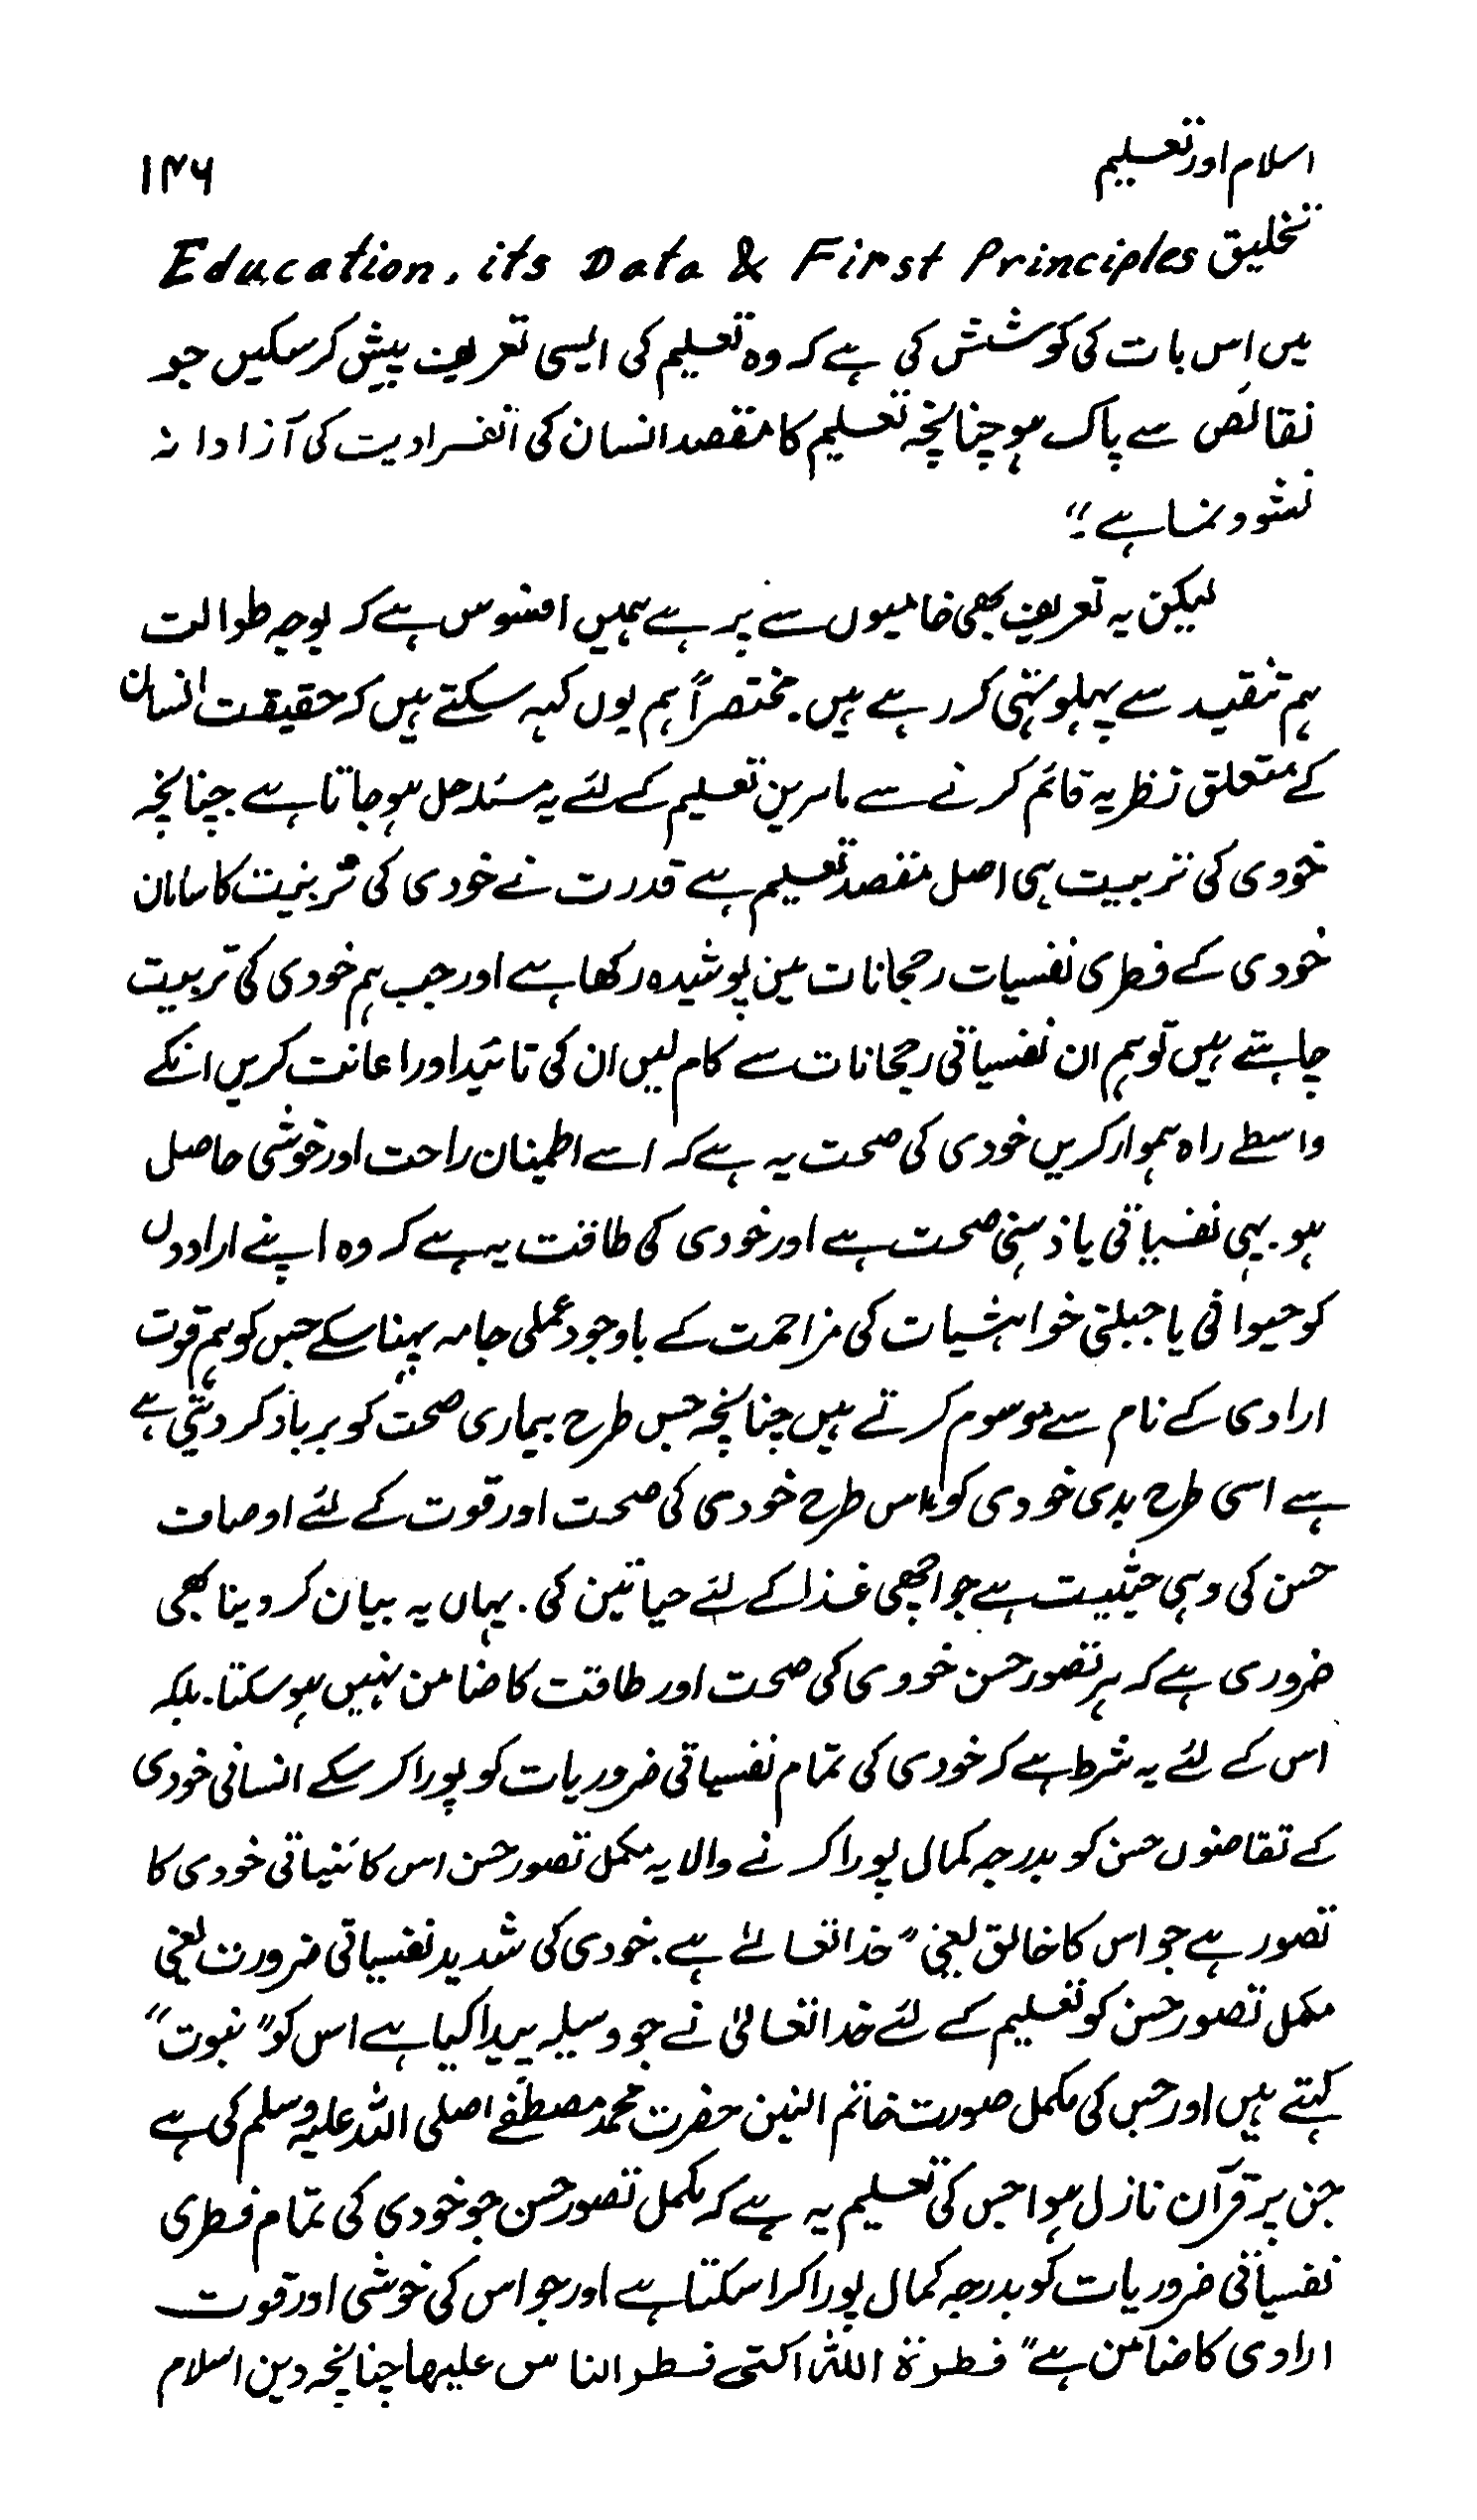 اسلام اور تعلیم ۱۴۶
تخلیق Education, its Data & First Principles
میں اِس بات کی کوشش کی ہے کہ وہ تعلیم کی ایسی تعریف پیش کر سکیں جو
نقائص سے پاک ہو چنانچہ تعلیم کا مقصد انسان کی انفرادیت کی آزادانہ
نشوونما ہے ۔"
لیکن یہ تعریف بھی خامیوں سے پر ہے ہمیں افسوس ہے کہ بوجہ طوالت
ہم تنقید سے پہلو تہی کر رہے ہیں۔ مختصراً ہم یوں کہہ سکتے ہیں کہ حقیقت انسان
کے متعلق نظریہ قائم کرنے سے ماہرین تعلیم کے لئے یہ مسئلہ حل ہو جاتا ہے چنانچہ
خودی کی تربیت ہی اصل مقصد تعلیم ہے قدرت نے خودی کی تربیت کا سامان
خودی کے فطری نفسیات رجحانات میں پوشیدہ رکھا ہے اور جب ہم خودی کی تربیت
چاہتے ہیں تو ہم ان نفسیاتی رجحانات سے کام لیں ان کی تائید اور اعانت کریں انکے
واسطے راہ ہموار کریں خودی کی صحت یہ ہے کہ اسے اطمینان راحت اور خوشی حاصل
ہو۔ یہی نفسیاتی یا ذہنی صحت ہے اور خودی کی طاقت یہ ہے کہ وہ اپنے ارادوں
کو حیوانی یا جبلتی خواہشیات کی مزاحمت کے باوجود عملی جامہ پہنا سکے جس کو ہم قوت
ارادی کے نام سے موسوم کرتے ہیں چنانچہ جس طرح بیماری صحت کو برباد کر دیتی ہے
ہے اسی طرح بدی خودی کو اس طرح خودی کی صحت اور قوت کے لئے اوصاف
حسن کی وہی حیثیت ہے جو اچھی غذا کے لئے حیاتین کی۔ یہاں یہ بیان کر دینا بھی
ضروری ہے کہ ہر تصور حسن خودی کی صحت اور طاقت کا ضامن نہیں ہو سکتا۔ بلکہ
اس کے لئے یہ شرط ہے کہ خودی کی تمام نفسیاتی ضروریات کو پورا کر سکے انسانی خودی
کے تقاضوں حسن کو بدرجہ کمال پورا کرنے والا یہ مکمل تصور حسن اس کائنیاتی خودی کا
تصور ہے جو اس کا خالق یعنی "خدا تعالےٰ ہے۔ خودی کی شدید نفسیاتی ضرورت یعنی
مکمل تصور حسن کو تعلیم کے لئے خدا تعالیٰ نے جو وسیلہ پیدا کیا ہے اس کو "نبوت"
کہتے ہیں اور جس کی مکمل صورت خاتم النبین حضرت محمد مصطفےٰ صلی اللہ علیہ وسلم کی ہے
جن پر قرآن نازل ہوا جس کی تعلیم یہ ہے کہ مکمل تصور حسن جو خودی کی تمام فطری
نفسیاتی ضروریات کو بدرجہ کمال پورا کرا سکتا ہے اور جو اس کی خوشی اور قوت
ارادی کا ضامن ہے "فطرۃ اللہ اکتی فطر الناس علیھا چنانچہ دین اسلام